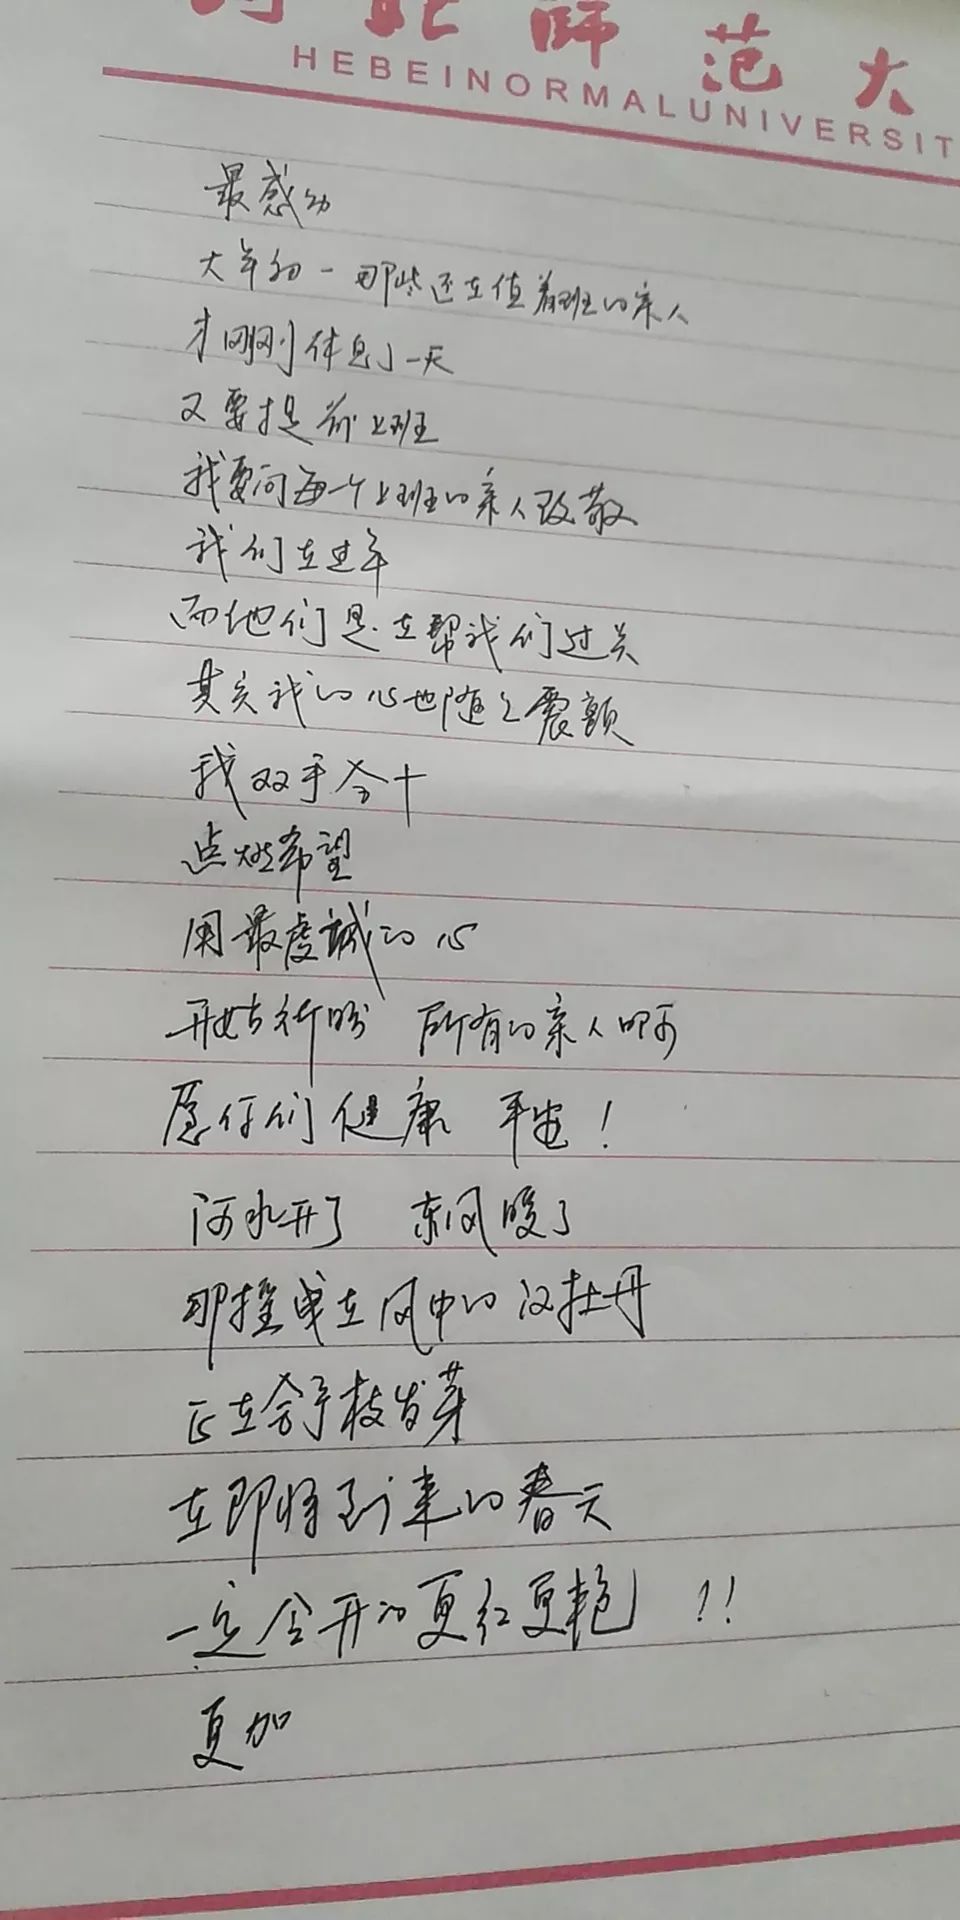 河北師范大
HEBEINORMALUNIVERSIT
最感动
大年初一那些还在值着班的亲人
才刚刚休息了一天
又要提前上班
我要向每一个上班的亲人致敬
我们在过年
而他们是在帮我们过关
其实我的心也随之震颤
我双手合十
点燃希望
用最虔誠的心
开始祈盼 所有的亲人啊
愿你们健康 平安!
河水开了 东风暖了
那摇曳在风中的汉牡丹
正在舒枝发芽
在即将到来的春天
一定会开的更红更艳!!
更加